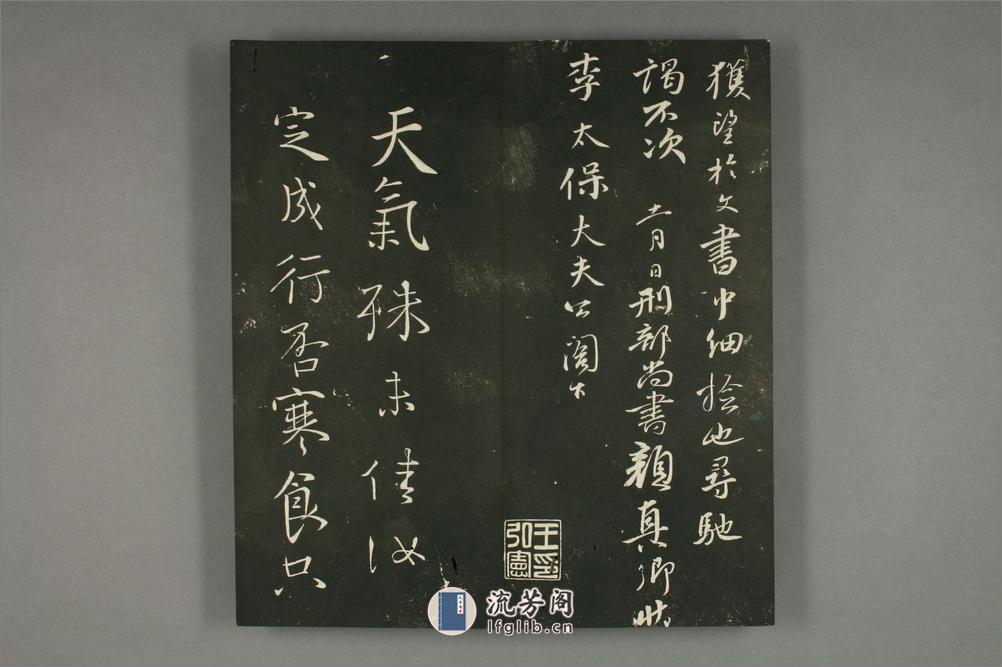 獲望於文書中細撿也尋馳
謁不次 十一月日刑部尚書顏真卿狀
李太保大夫公閣下
天氣殊未佳汝
定成行否寒食只
王弘憲印
流芳阁
lfglib.cn